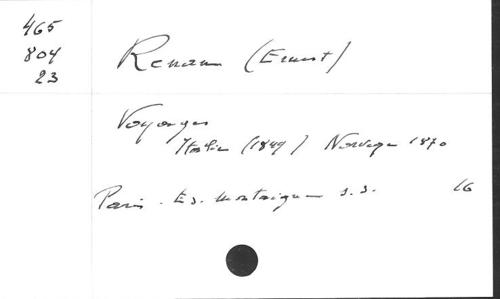 465
804
23
Renan (Ernest)
Voyages
Italie (1849) Norvège 1870
Paris. Ed. Montaigne s.d. 16